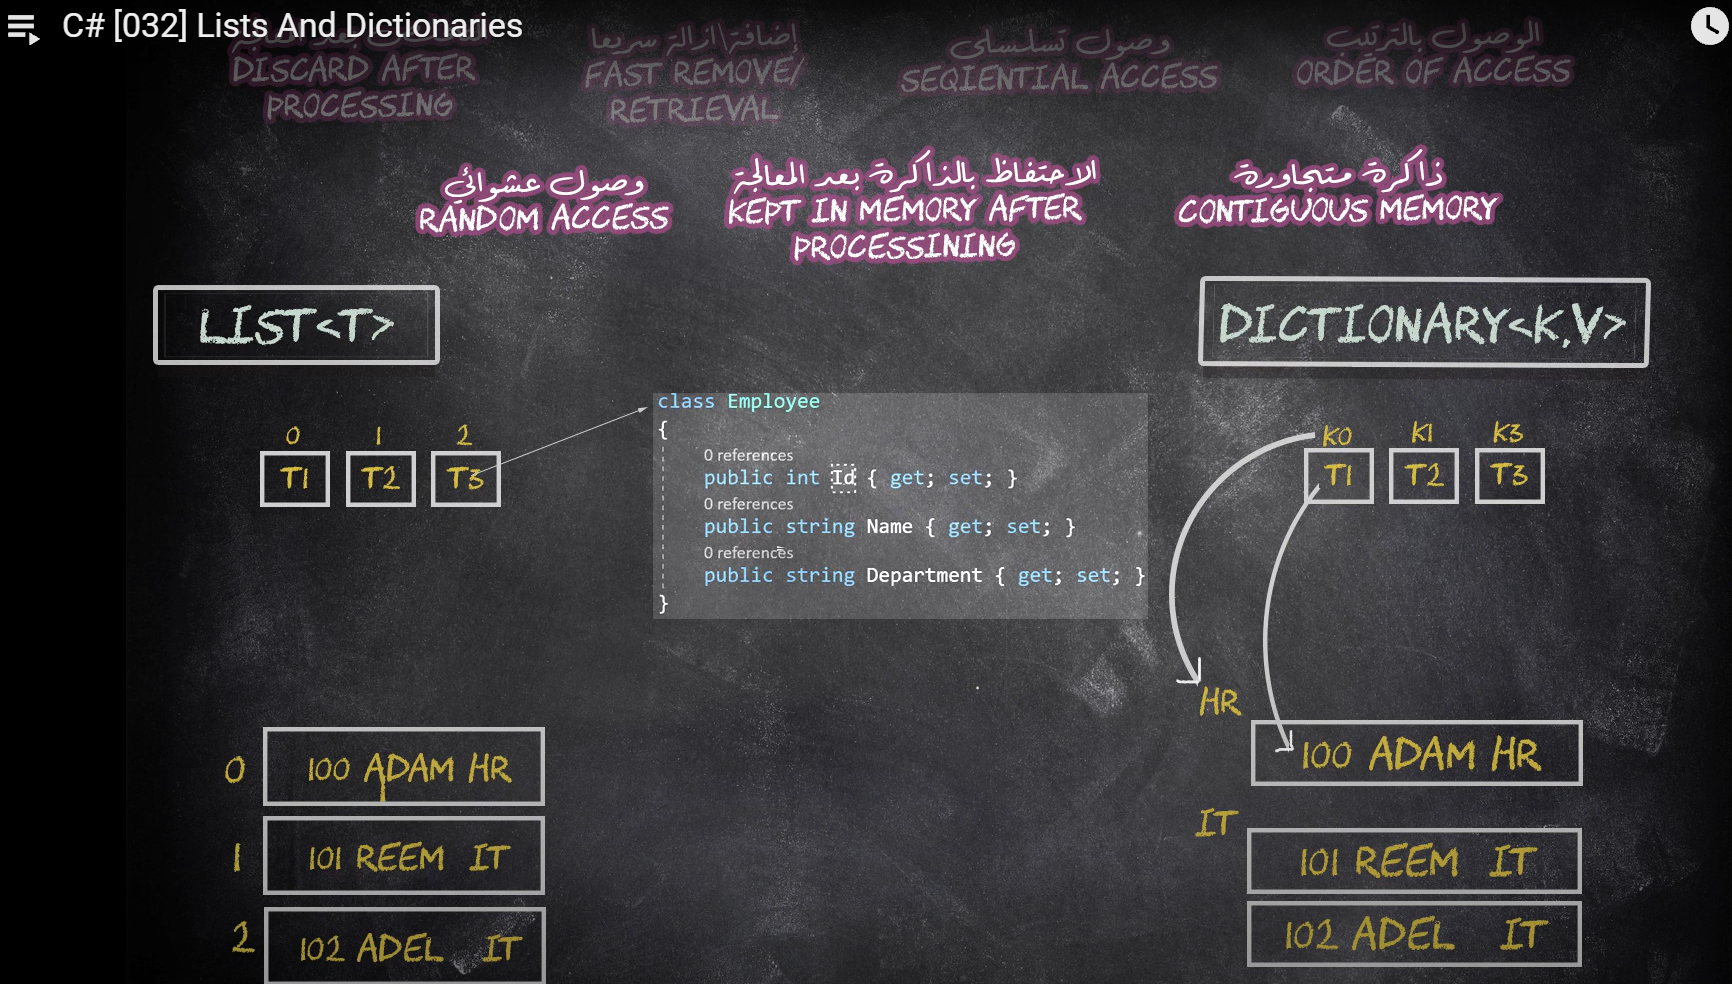 C# [032] Lists And Dictionaries
إضافة\ازالة سريعا
وصول تسلسلي
الوصول بالترتيب
DISCARD AFTER
PROCESSING
FAST REMOVE/
RETRIEVAL
SEQIENTIAL ACCESS
ORDER OF ACCESS
وصول عشوائي
RANDOM ACCESS
الاحتفاظ بالذاكرة بعد المعالجة
KEPT IN MEMORY AFTER
PROCESSINING
ذاكرة متجاورة
CONTIGUOUS MEMORY
LIST<T>
DICTIONARY<K,V>
0 1 2
T1 T2 T3
class Employee
{
0 references
public int Id { get; set; }
0 references
public string Name { get; set; }
0 references
public string Department { get; set; }
}
K0 K1 K3
T1 T2 T3
0 100 ADAM HR
1 101 REEM IT
2 102 ADEL IT
HR
100 ADAM HR
IT
101 REEM IT
102 ADEL IT